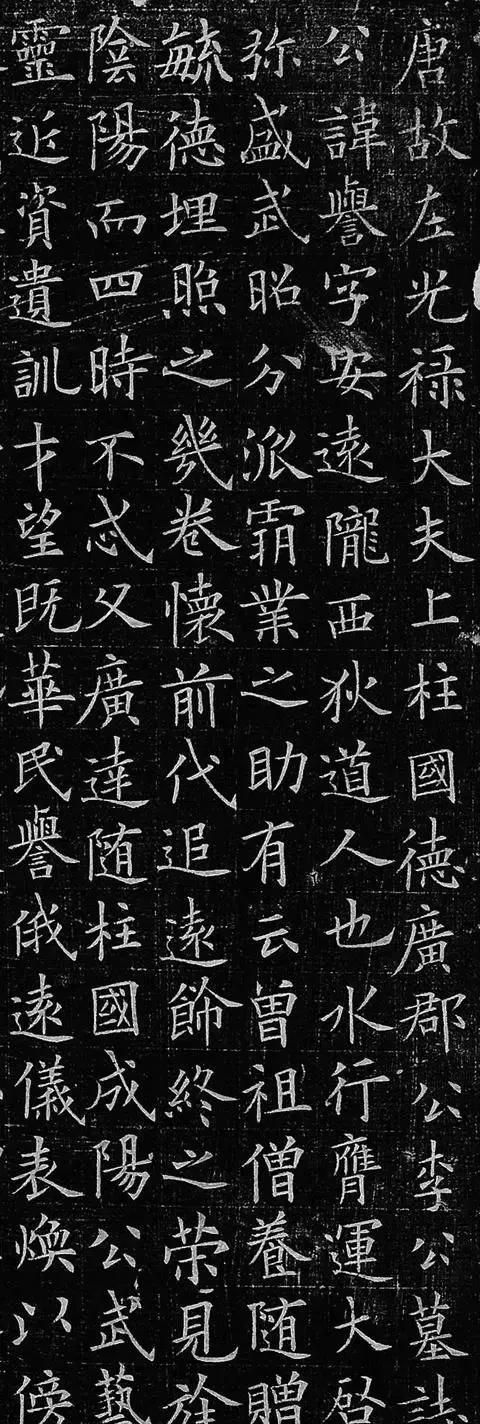 唐故左光禄大夫上柱國德廣郡公李公墓誌
公諱譽字安遠隴西狄道人也水行膺運大啓
弥盛武昭分派霸業之助有云曽祖僧養随贈
毓德埋照之㡬卷懷前代追遠飾終之荣見於
陰陽而四時不忒父廣達随柱國成陽公武藝
靈近資遺訓才望既華民譽俄遠儀表煥以傍